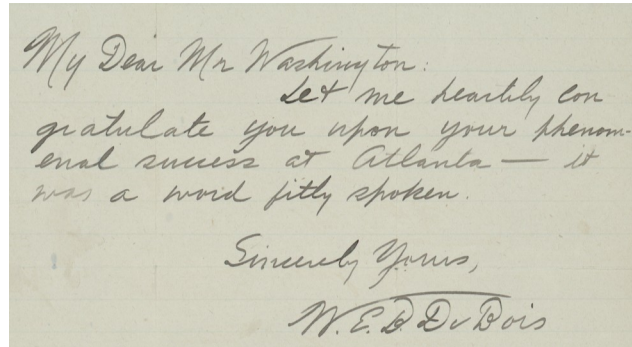 My Dear Mr Washington:
Let me heartily con
gratulate you upon your phenom-
enal success at Atlanta — it
was a word fitly spoken.
Sincerely Yours,
W.E.B. Du Bois